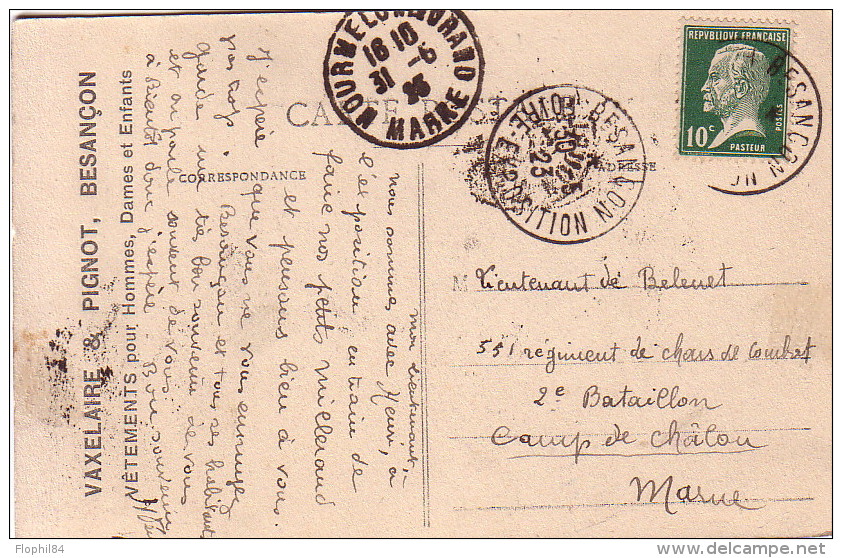 VAXELAIRE & PIGNOT, BESANÇON
VÊTEMENTS pour Hommes, Dames et Enfants
CARTE POSTALE
CORRESPONDANCE
ADRESSE
mon lieutenant,
nous sommes avec Henri, à
l'exposition en train de
faire nos petits millerand
et pensons bien à vous.
J'espère que vous ne vous ennuyez
pas trop. Besançon et tous ses habitants
garde un très bon souvenir de vous
et on parle souvent de vous.
à Bientôt donc j'espère. Bon souvenir
MOURMELON-LE-GRAND
18 10
31 -5
23
MARNE
BESANÇON
FOIRE-EXPOSITION
30
23
BESANÇON
REPVBLIQUE FRANÇAISE
10c
POSTES
PASTEUR
M Lieutenant de
551 régiment de chars de combat
2e Bataillon
Camp de Châlon
Marne
Flophil84
delcampe.net